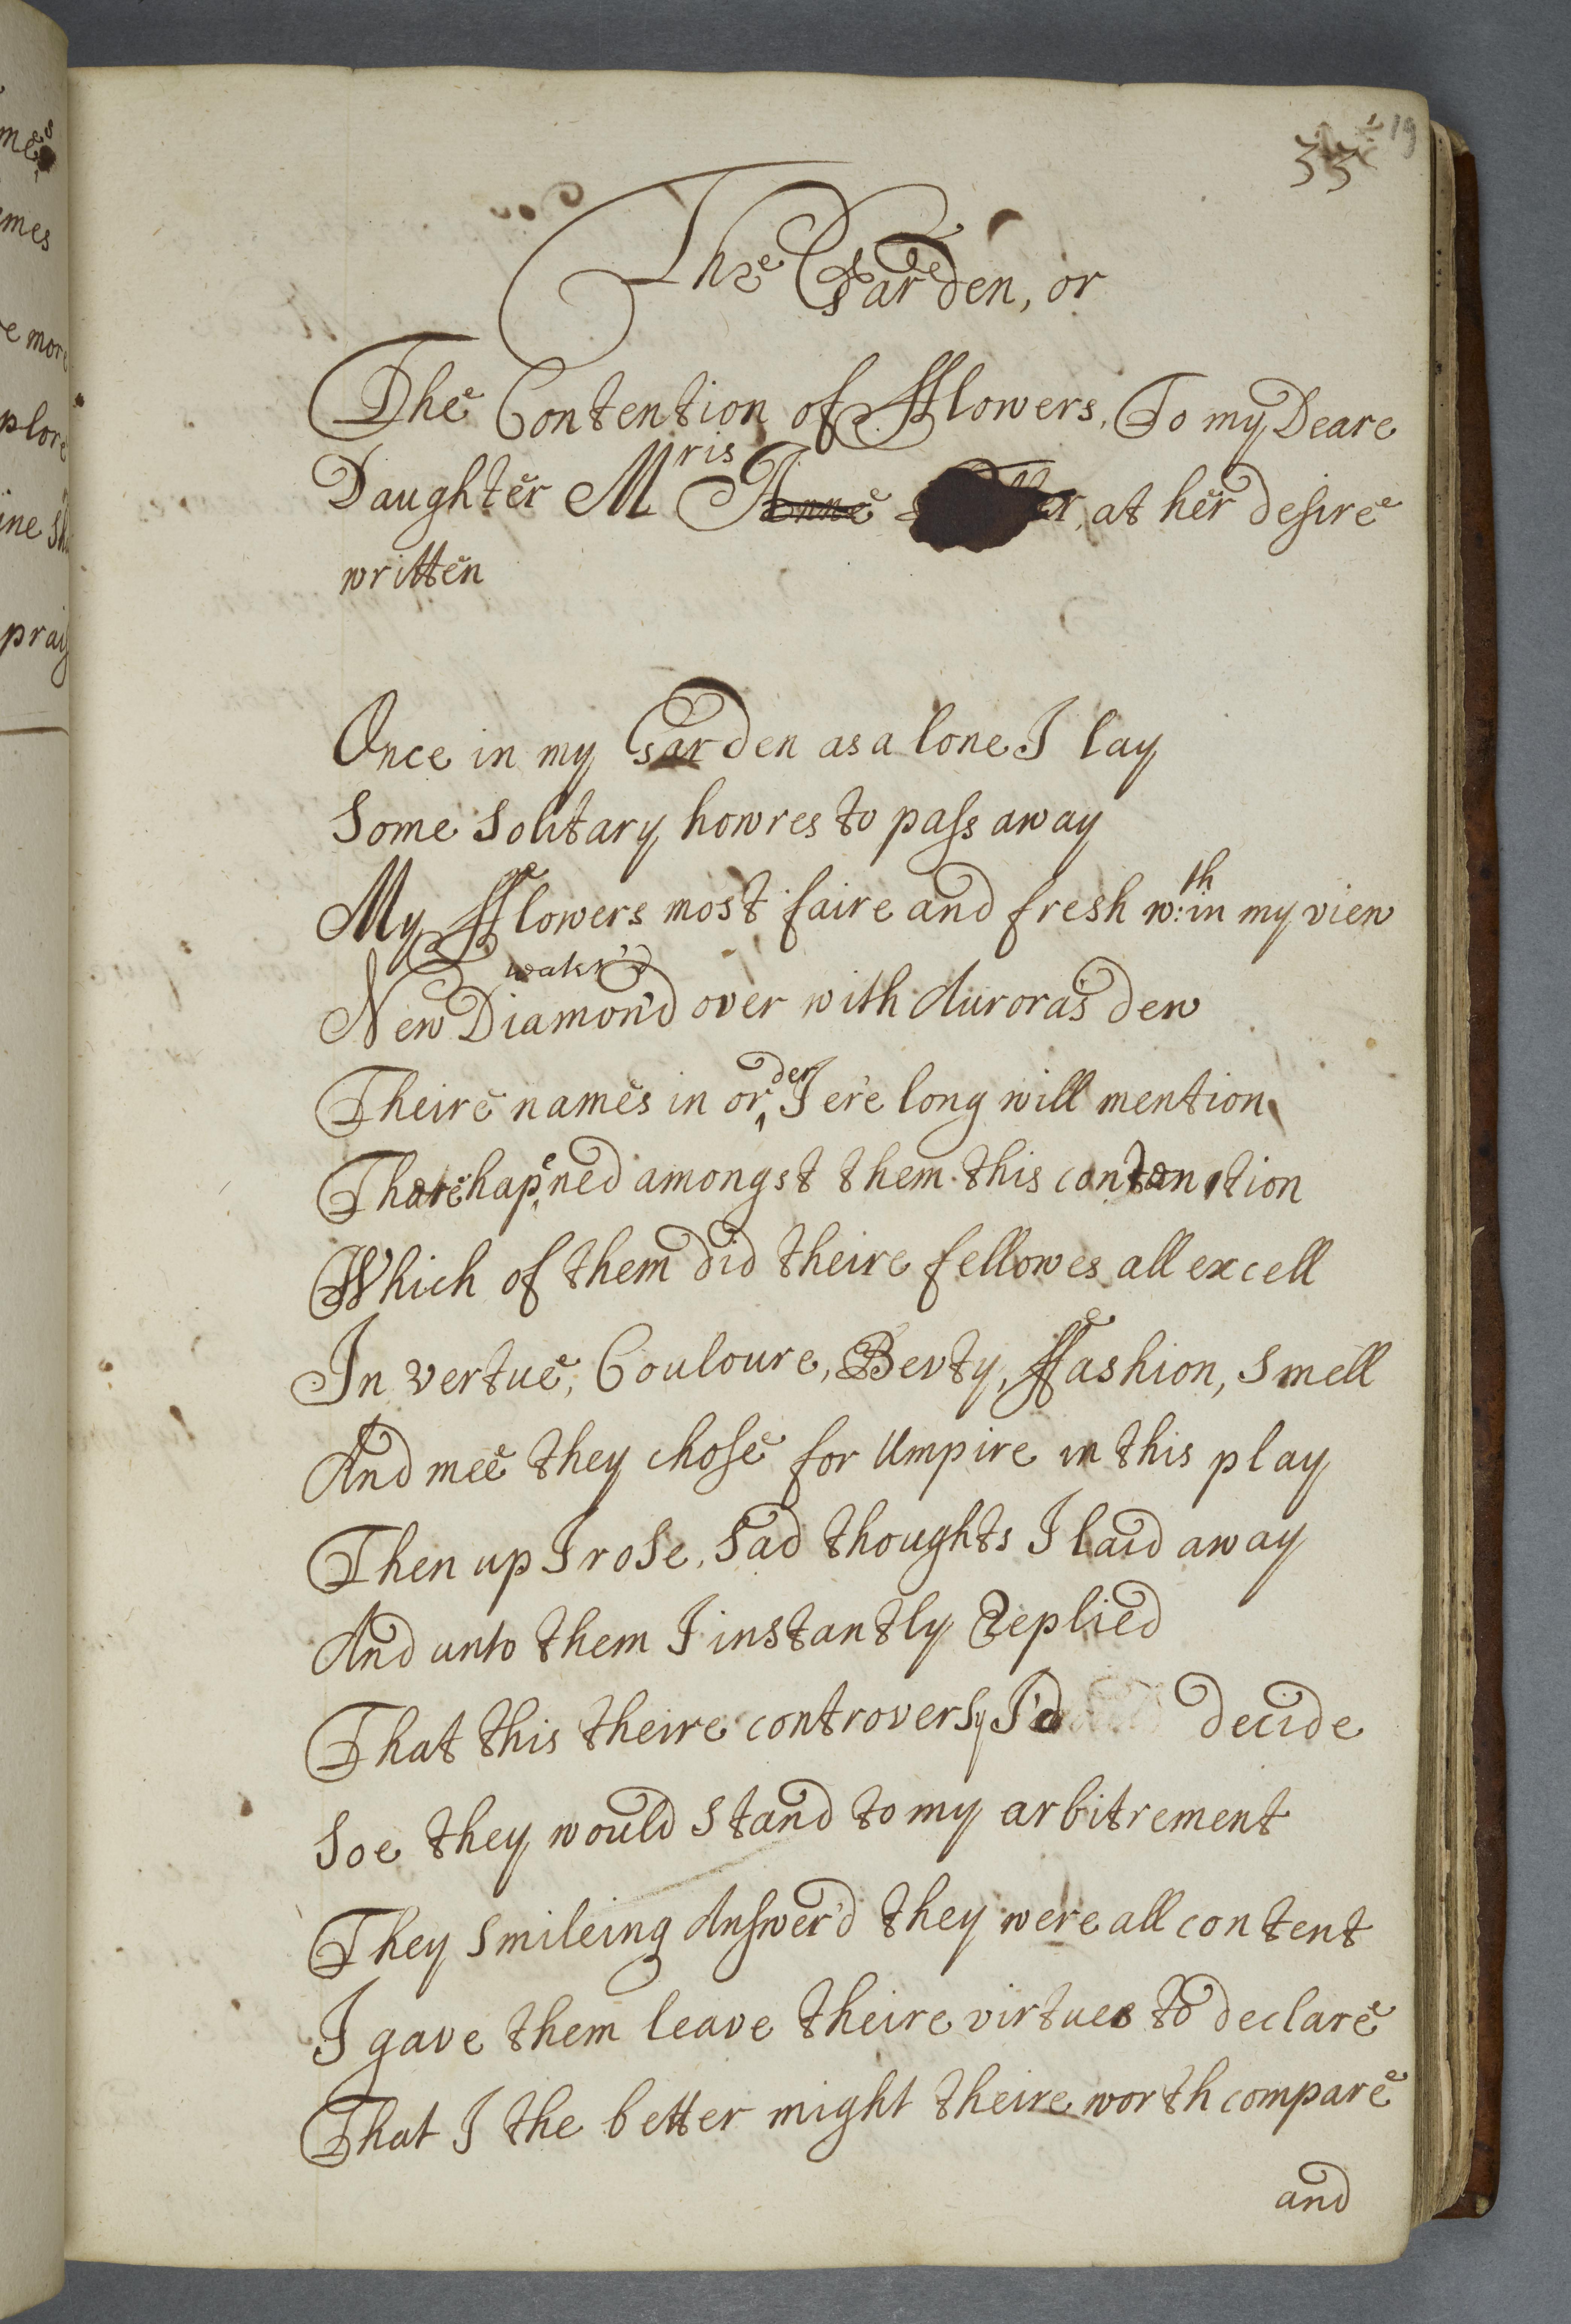 33 19
The Garden, or
The Contention of fflowers, To my Deare
Daughter Mris Anne at her desire
written
Once in my Garden as a lone I lay
Some Solitary howres to pass away
My fflowers most faire and fresh w:th in my view
wak'd
New Diamond over with Aurora's dew
Theire names in order I er'e long will mention
There hapened amongst them this contention
Which of them did theire fellowes all excell
In vertue, Couloure, Bevty, ffashion, Smell
And mee they chose for Umpire in this play
Then up I rose, Sad thoughts I laid away
And unto them I instantly Replied
That this theire controversy I'd decide
Soe they would Stand to my arbitrement
They Smileing Answer'd they were all content
I gave them leave theire virtues to declare
That I the better might theire worth compare
and